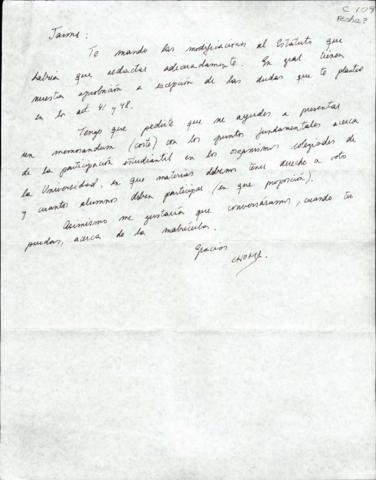 C 109
Fecha?
Jaime:
Te mando las modificaciones al Estatuto que
habría que redactar adecuadamente. En gral tienen
nuestra aprobación a excepción de las dudas que te planteo
en los art. 41 y 48.
Tengo que pedirte que me ayudes a presentar
un memorandum (corto) con los puntos fundamentales acerca
de la participación estudiantil en los organismos colegiados de
la Universidad, en que materias debemos tener derecho a voto
y cuantos alumnos deben participar (en que proporción).
Asimismo me gustaría que conversaramos, cuando tu
puedas, acerca de la matrícula.
Gracias